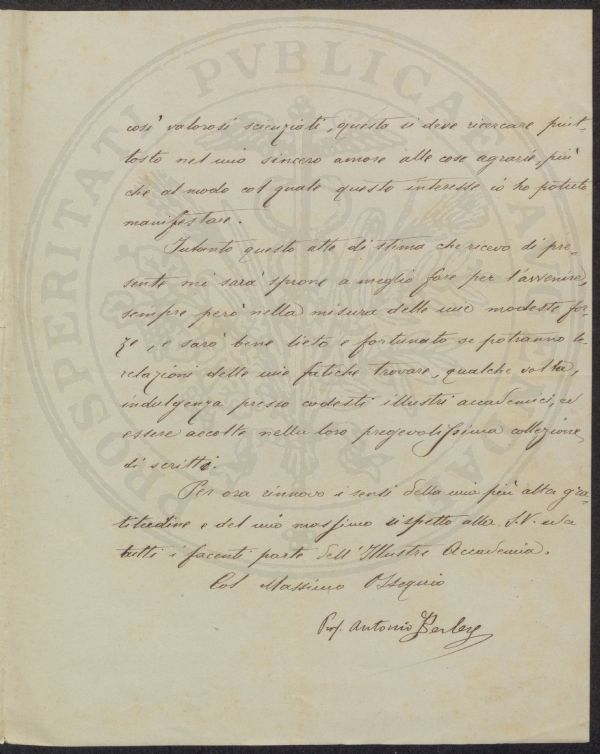 PROSPERITATI PVBLICAE
così valorosi scienziati, questo si deve ricercare piut-
tosto nel mio sincero amore alle cose agrarie, più
che al modo col quale questo interesse io ho potuto
manifestare.
Intanto questo atto di stima che ricevo di pre-
sente mi sarà sprone a meglio fare per l'avvenire,
sempre però nella misura delle mie modeste for-
ze, e sarò bene lieto e fortunato se potranno le
relazioni delle mie fatiche trovare, qualche volta,
indulgenza presso codesti illustri accademici, ed
essere accolte nella loro pregevolissima collezione
di scritti.
Per ora rinnovo i sensi della mia più alta gra-
titudine e del mio massimo rispetto alla S.V. ed a
tutti i facenti parte dell'Illustre Accademia.
Col Massimo Ossequio
Prof. Antonio